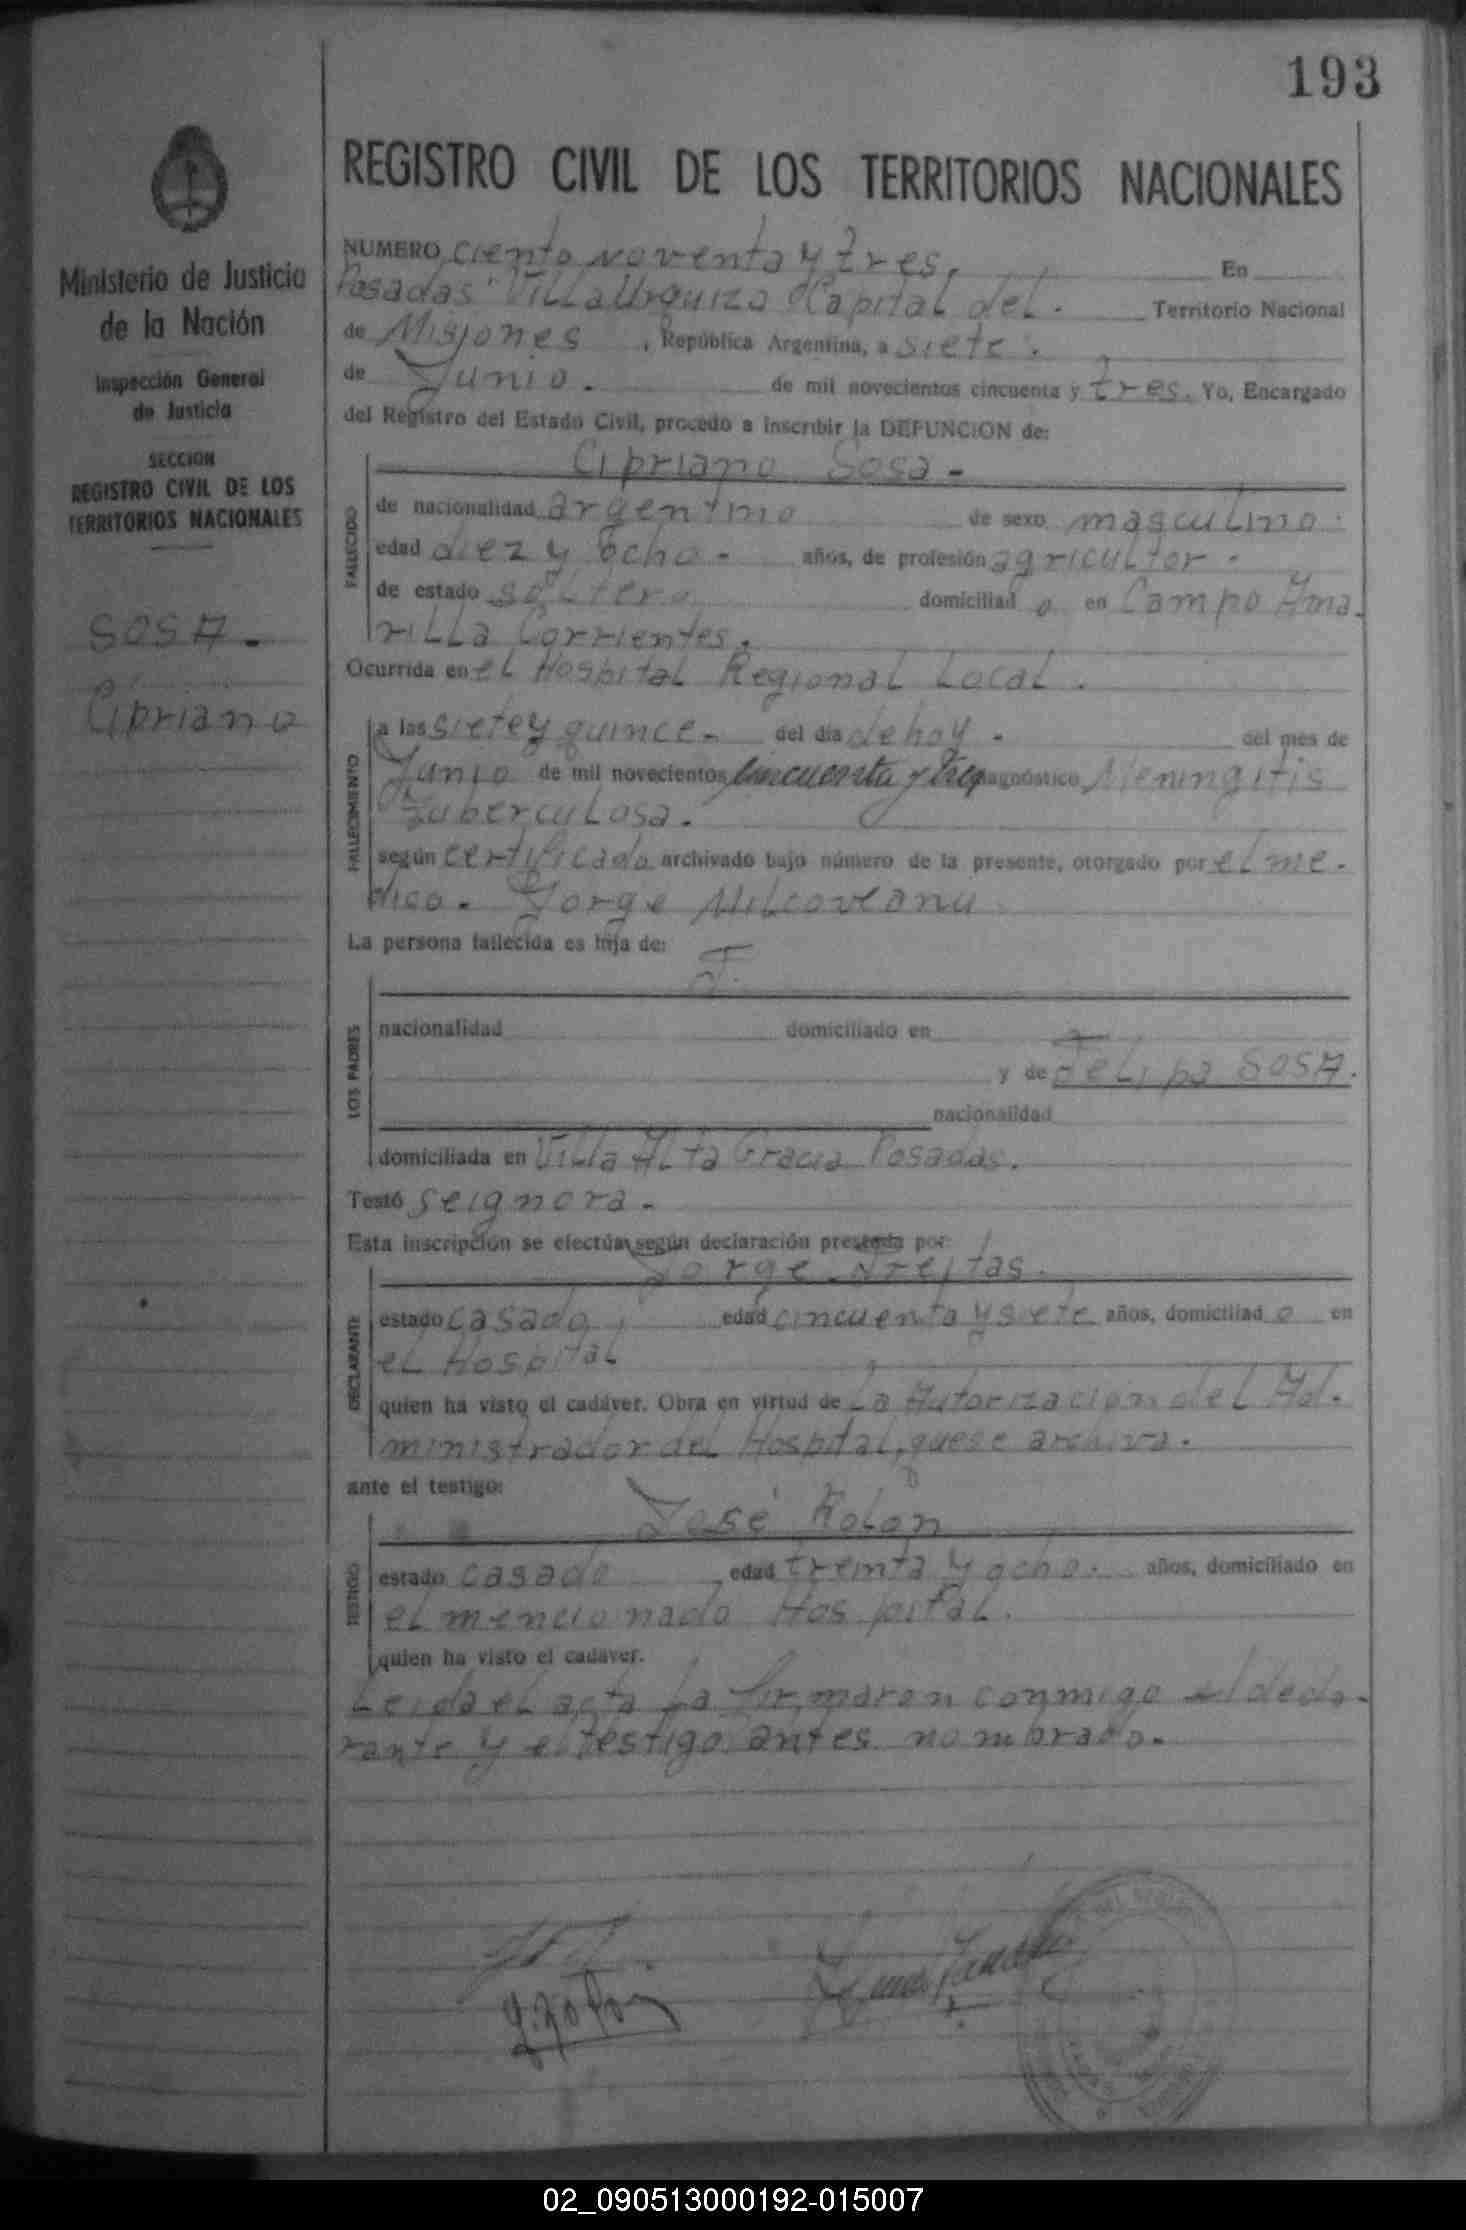 193
REGISTRO CIVIL DE LOS TERRITORIOS NACIONALES
Ministerio de Justicia
de la Nación
Inspección General
de Justicia
SECCION
REGISTRO CIVIL DE LOS
TERRITORIOS NACIONALES
SOSA.
Cipriano
NUMERO ciento noventa y tres. En
Posadas Villa Urquiza Capital del. Territorio Nacional
de Misiones, República Argentina, a siete.
de Junio. de mil novecientos cincuenta y tres. Yo, Encargado
del Registro del Estado Civil, procedo a inscribir la DEFUNCION de:
Cipriano Sosa-
FALLECIDO
de nacionalidad argentino de sexo masculino.
edad diez y ocho- años, de profesión agricultor.
de estado soltero domiciliado en Campo Ama-
rilla Corrientes.
Ocurrida en el Hospital Regional Local.
FALLECIMIENTO
a las siete y quince- del día de hoy- del mes de
Junio de mil novecientos cincuenta y tres diagnóstico Meningitis
Tuberculosa.
según certificado archivado bajo número de la presente, otorgado por el me-
dico. Jorge Milcoveanu
La persona fallecida es hija de:
LOS PADRES
nacionalidad domiciliado en
y de Felipa SOSA.
nacionalidad
domiciliada en Villa Alta Gracia Posadas.
Testó seignora-
Esta inscripción se efectúa según declaración prestada por:
Jorge Freitas.
DECLARANTE
estado casado, edad cincuenta y siete años, domiciliado en
el Hospital
quien ha visto el cadáver. Obra en virtud de La Autorización del Ad-
ministrador del Hospital, que se archiva.
ante el testigo:
José Rolon
TESTIGO
estado casado edad treinta y ocho. años, domiciliado en
el mencionado Hospital.
quien ha visto el cadáver.
Leida el acta La firmaron conmigo el decla-
rante y el testigo antes nombrado.
02_090513000192-015007